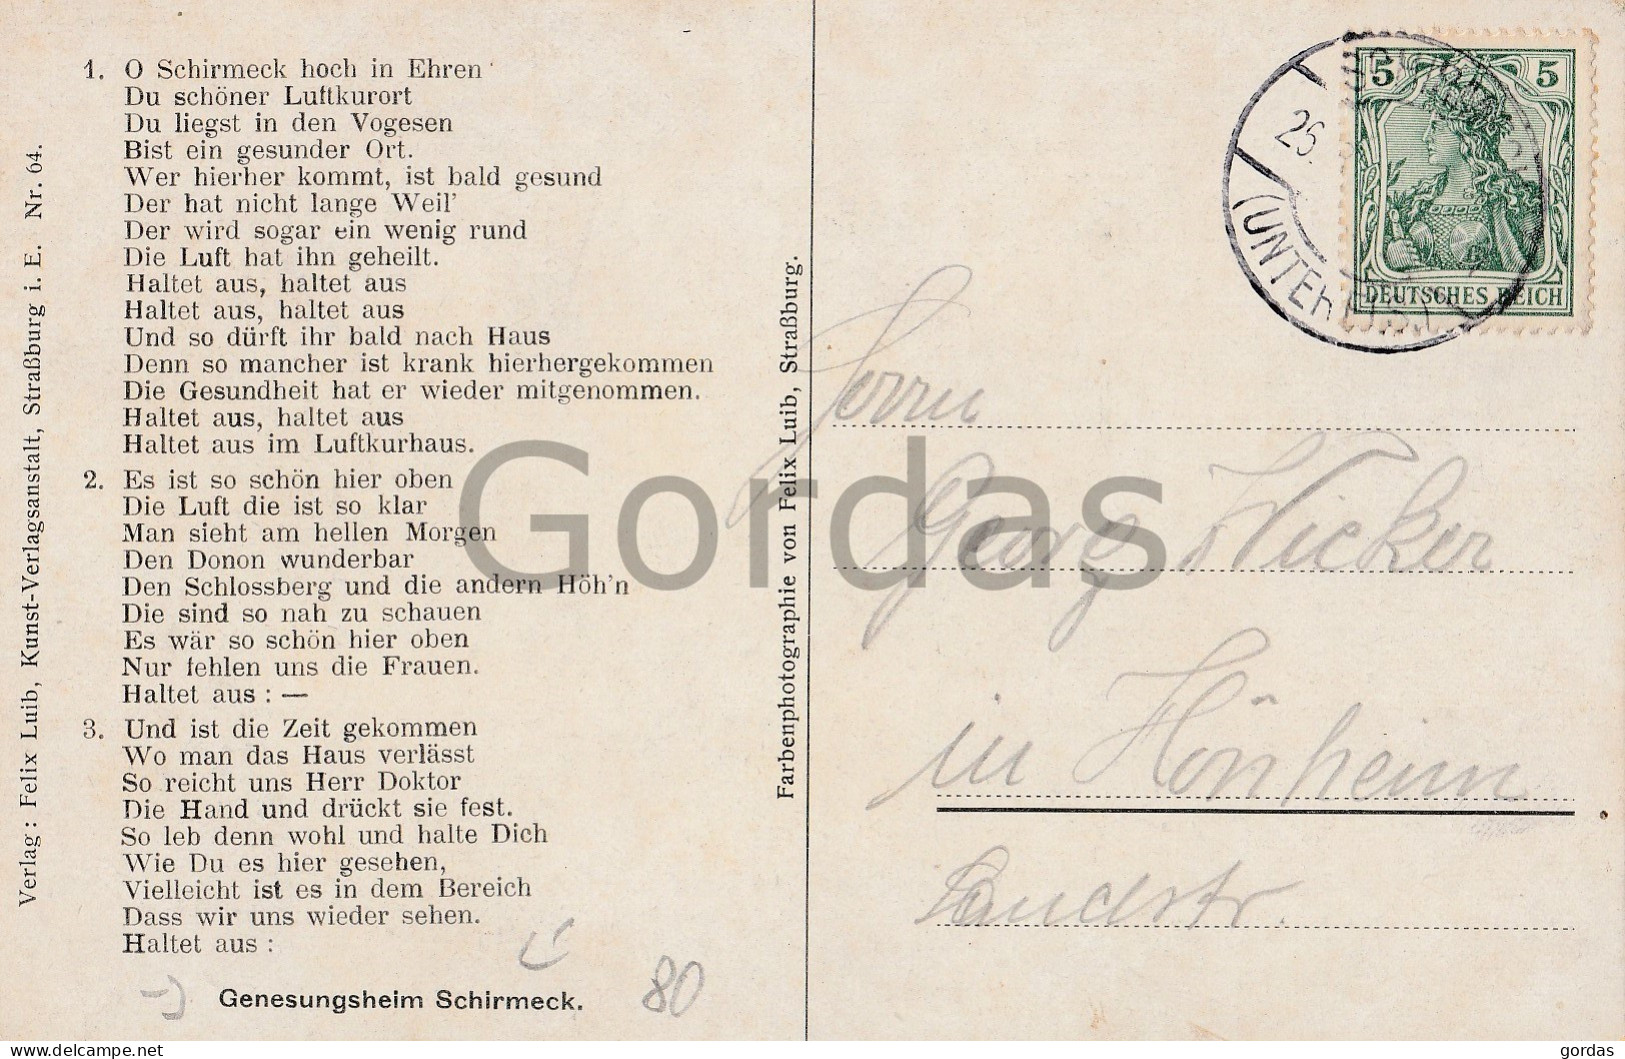 1. O Schirmeck hoch in Ehren
Du schöner Luftkurort
Du liegst in den Vogesen
Bist ein gesunder Ort.
Wer hierher kommt, ist bald gesund
Der hat nicht lange Weil'
Der wird sogar ein wenig rund
Die Luft hat ihn geheilt.
Haltet aus, haltet aus
Haltet aus, haltet aus
Und so dürft ihr bald nach Haus
Denn so mancher ist krank hierhergekommen
Die Gesundheit hat er wieder mitgenommen.
Haltet aus, haltet aus
Haltet aus im Luftkurhaus.
2. Es ist so schön hier oben
Die Luft die ist so klar
Man sieht am hellen Morgen
Den Donon wunderbar
Den Schlossberg und die andern Höh'n
Die sind so nah zu schauen
Es wär so schön hier oben
Nur fehlen uns die Frauen.
Haltet aus : —
3. Und ist die Zeit gekommen
Wo man das Haus verlässt
So reicht uns Herr Doktor
Die Hand und drückt sie fest.
So leb denn wohl und halte Dich
Wie Du es hier gesehen,
Vielleicht ist es in dem Bereich
Dass wir uns wieder sehen.
Haltet aus :
Genesungsheim Schirmeck.
80
Verlag: Felix Luib, Kunst-Verlagsanstalt, Straßburg i. E. Nr. 64.
Farbenphotographie von Felix Luib, Straßburg.
5 5
DEUTSCHES REICH
26.
(UNTER
Herrn
Georg Wicker
in Hönheim
Landstr.
Gordas
www.delcampe.net
gordas